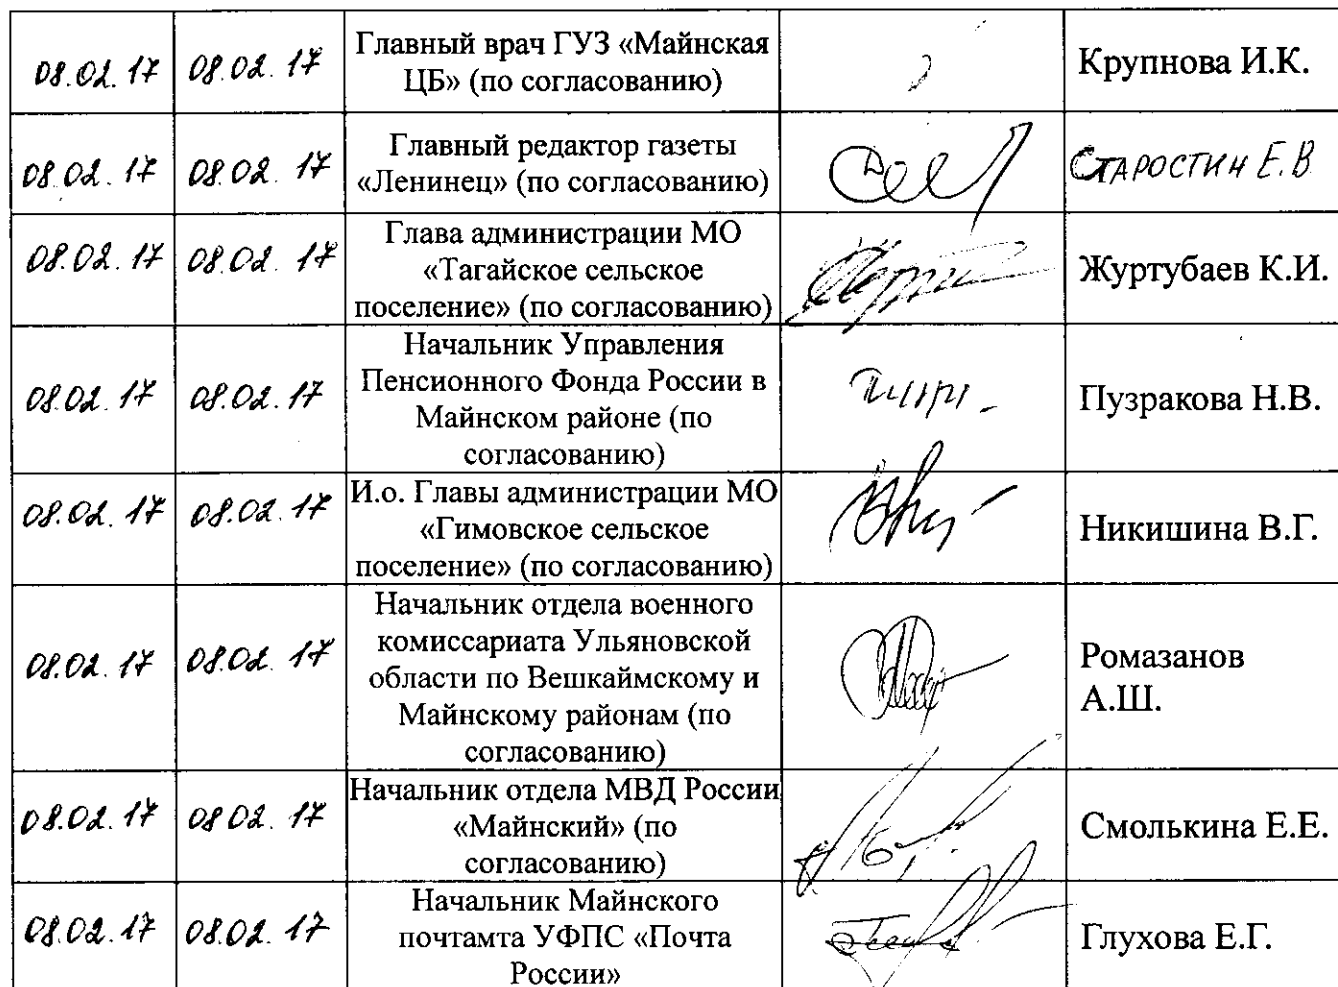 08.02.17 08.02.17 Главный врач ГУЗ «Майнская
ЦБ» (по согласованию)
Крупнова И.К.
08.02.17 08.02.17 Главный редактор газеты
«Ленинец» (по согласованию)
Старостин Е.В
08.02.17 08.02.17 Глава администрации МО
«Тагайское сельское
поселение» (по согласованию)
Журтубаев К.И.
08.02.17 08.02.17 Начальник Управления
Пенсионного Фонда России в
Майнском районе (по
согласованию)
Пузракова Н.В.
08.02.17 08.02.17 И.о. Главы администрации МО
«Гимовское сельское
поселение» (по согласованию)
Никишина В.Г.
08.02.17 08.02.17 Начальник отдела военного
комиссариата Ульяновской
области по Вешкаймскому и
Майнскому районам (по
согласованию)
Ромазанов
А.Ш.
08.02.17 08.02.17 Начальник отдела МВД России
«Майнский» (по
согласованию)
Смолькина Е.Е.
08.02.17 08.02.17 Начальник Майнского
почтамта УФПС «Почта
России»
Глухова Е.Г.